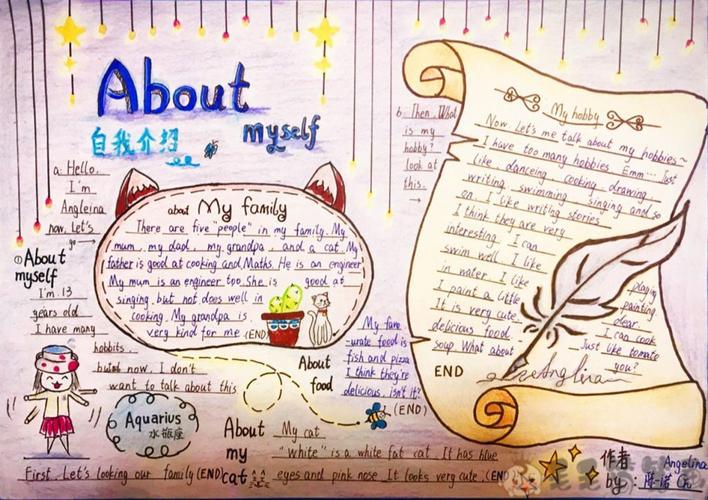 About
自我介绍
myself
a. Hello.
I'm
Angleina
now. Let's
go →
①About
myself
I'm 13
years old
I have many
hobbits.
but now. I don't
want to talk about this
Aquarius
水瓶座
First. Let's looking our family (END)
about My family
There are five "people" in my family. My
mum, my dad, my grandpa, and a cat. My
father is good at cooking and Maths. He is an engineer
My mum is an engineer too. She is good at
singing. but not does well in
cooking. My grandpa is
very kind for me (END)
About
food
My favo
-urate food is
fish and pizza
I think they're
delicious. isn't it?
(END)
About
my
cat
My cat
"white" is a white fat cat. It has blue
eyes and pink nose. It looks very cute. (END)
b. Then. What
is my
hobby?
look at
this. →
My hobby
Now Let's me talk about my hobbies~
I have too many hobbies. Emm... Just
like danceing. cooking. drawing.
writing. swimming. singing and so
on. I like writing stories.
I think they are very
interesting. I can
swim well. I like playing
in water. I like painting
I paint a little clear.
It is very cute. I can cook
delicious food. Just like tomato
soup. What about you?
END
Anglina
作者 Angelina
by: